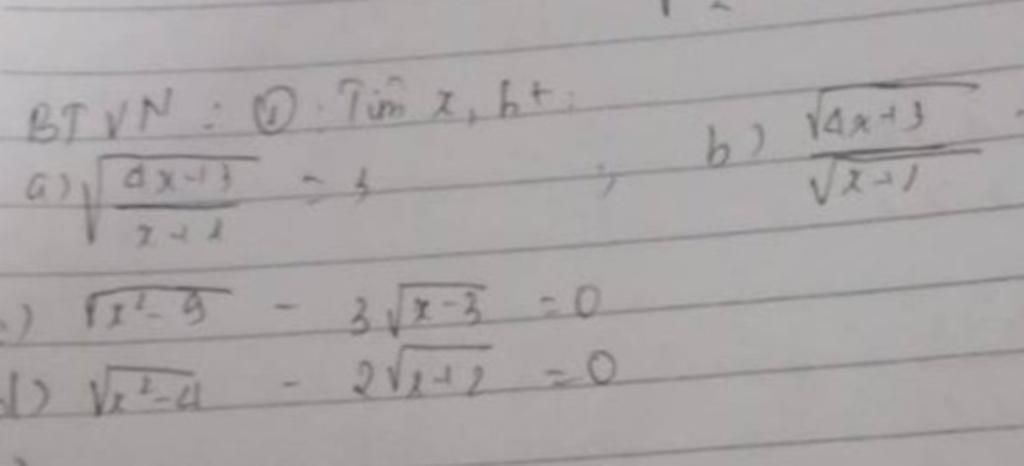 BTVN : ① . Tìm x, bt :
a) √((4x+3)/(x+1)) = 3 ; b) √(4x+3)/√(x+1)
) √(x²-9) - 3√(x-3) = 0
d) √(x²-4) - 2√(x+2) = 0